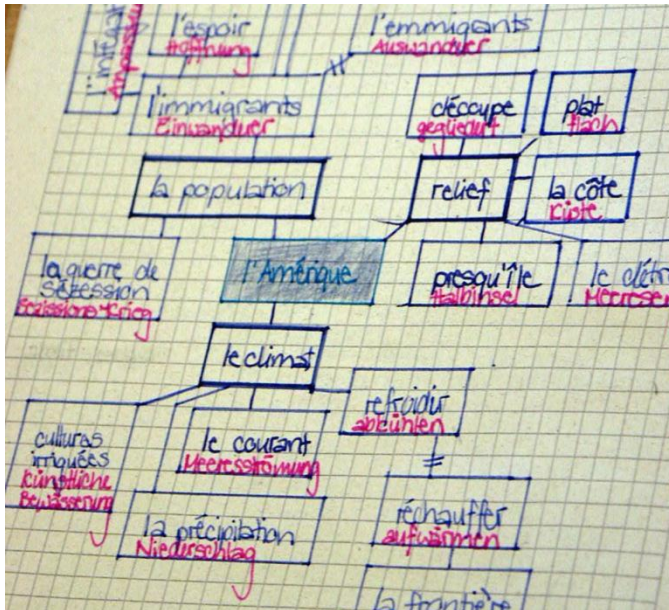 l'intégrat
Anpassun
l'espoir
Hoffnung
l'emmigrants
Auswanduer
l'immigrants
Einwanduer
découpe
gegliedert
plat
flach
la population
relief
la côte
Küste
la guerre de
Sézession
Sezessions-Krieg
l'Amérique
presqu'île
Halbinsel
le détr
Meeresen
le climat
refroidir
abkühlen
cultures
irriquées
künstliche
Bewässerung
le courant
Meeresströmung
la précipilation
Niederschlag
réchauffer
aufwärmen
la frontière